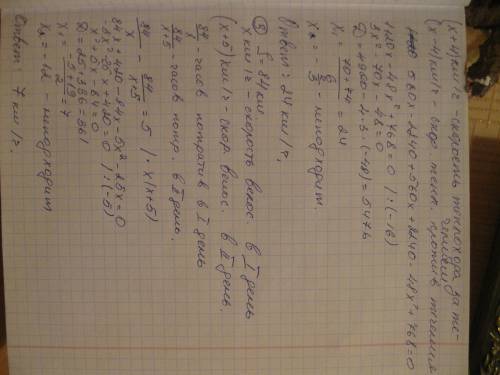 (x-4) км/ч - скорость теплохода за те-
чением
(x-4) км/ч - скор. тепл. против течения
560x - 2240 + 560x + 2240 - 48x² + 768 = 0
1120x - 48x² + 768 = 0 | : (-16)
3x² - 70x - 48 = 0
D = 4900 - 4·3·(-48) = 5476
x₁ = 70+74 / 6 = 24
x₂ = - 2/3 - не подходит.
Ответ: 24 км/ч.
⑤ S = 84 км
x км/ч - скорость велос. в I день
(x+5) км/ч - скор. велос. в II день.
84/x - часов потратив в I день
84/x+5 - часов потр. в II день.
84/x - 84/x+5 = 5 | · x(x+5)
84x + 420 - 84x - 5x² - 25x = 0
-5x² - 25x + 420 = 0 | : (-5)
x² + 5x - 84 = 0
D = 25 + 336 = 361
x₁ = -5+19 / 2 = 7
x₂ = -12 - не подходит
Ответ: 7 км/ч.